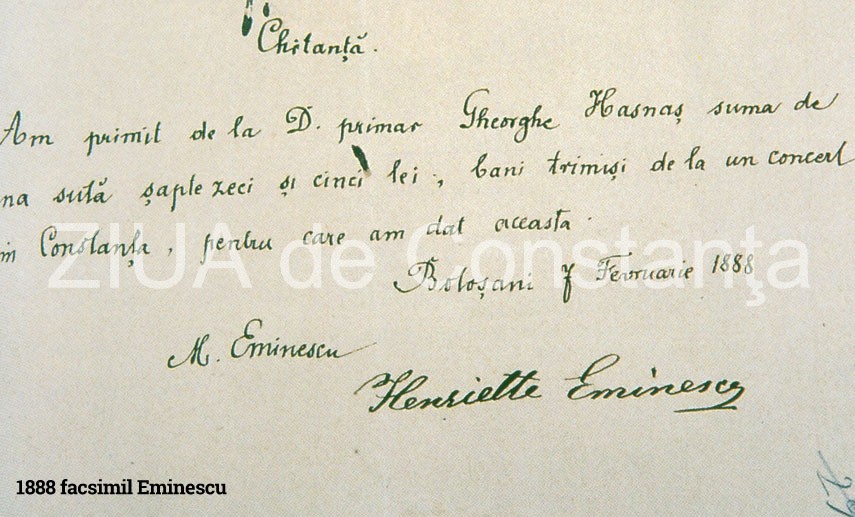 Chitanță.
Am primit de la D. primar Gheorghe Hasnaș suma de
na sută șapte zeci și cinci lei, bani trimiși de la un concert
in Constanța, pentru care am dat aceasta.
Botoșani 7 Fevruarie 1888
M. Eminescu
Henriette Eminescu
ZIUA de Constanţa
1888 facsimil Eminescu